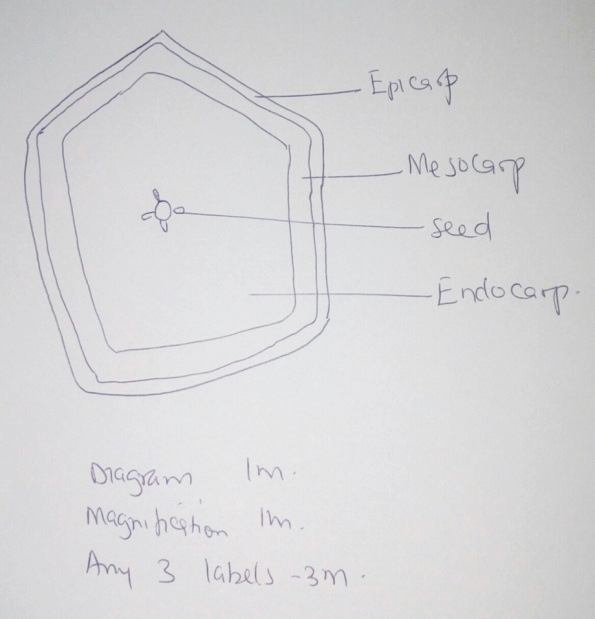 Epicarp
Mesocarp
seed
Endocarp.
Diagram 1m.
Magnification 1m.
Any 3 labels - 3m.